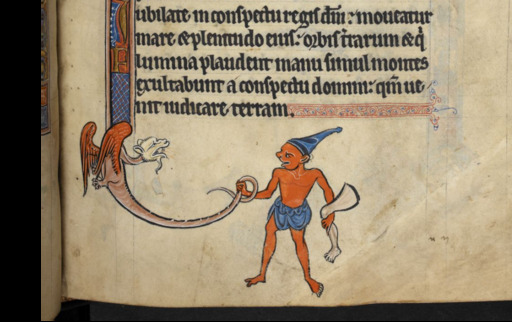 iubilate in conspectu regis dñi: moueatur
mare & plenitudo eius: orbis t̄rarum & q̇
lumina plaudent manu simul montes
exultabunt a conspectu domini: qm̄ ue
nit iudicare terram.